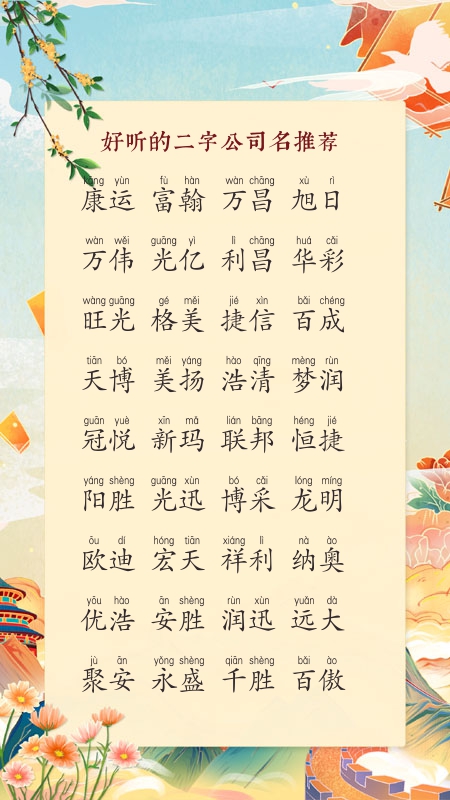 好听的二字公司名推荐
kāng yùn fù hàn wàn chāng xù rì
康运 富翰 万昌 旭日
wàn wěi guāng yì lì chāng huá cǎi
万伟 光亿 利昌 华彩
wàng guāng gé měi jié xìn bǎi chéng
旺光 格美 捷信 百成
tiān bó měi yáng hào qīng mèng rùn
天博 美扬 浩清 梦润
guān yuè xīn mǎ lián bāng héng jié
冠悦 新玛 联邦 恒捷
yáng shèng guāng xùn bó cǎi lóng míng
阳胜 光迅 博采 龙明
ōu dí hóng tiān xiáng lì nà ào
欧迪 宏天 祥利 纳奥
yōu hào ān shèng rùn xùn yuǎn dà
优浩 安胜 润迅 远大
jù ān yǒng shèng qiān shèng bǎi ào
聚安 永盛 千胜 百傲